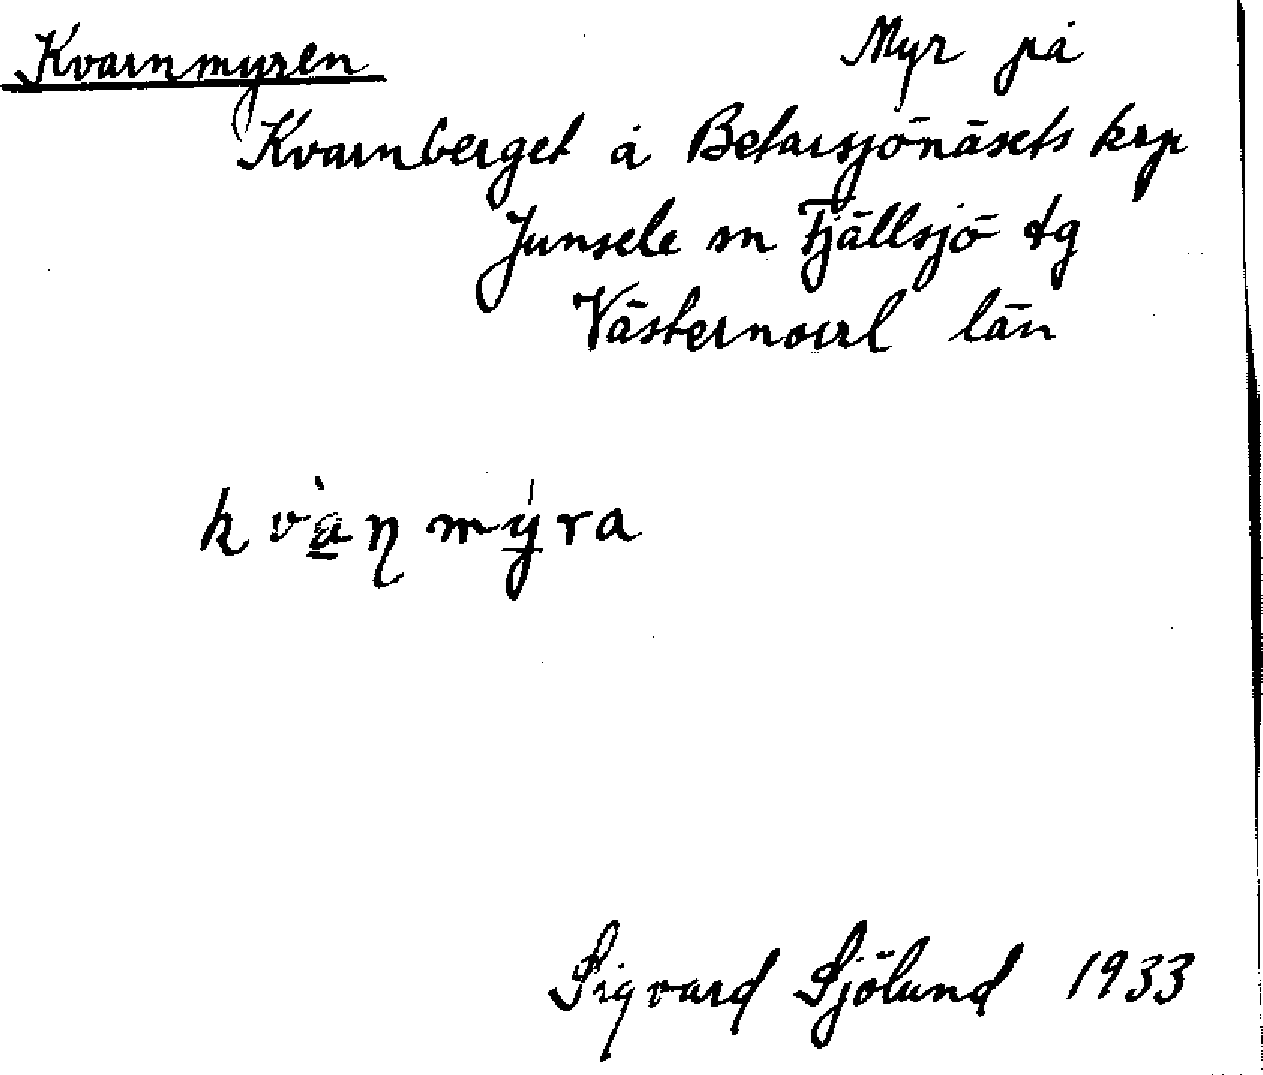 Kvarnmyren Myr på
Kvarnberget å Betarsjönäsets krp
Junsele sn Fjällsjö tg
Västernorrl län
kvàṉɳmýra
Sigvard Sjölund 1933